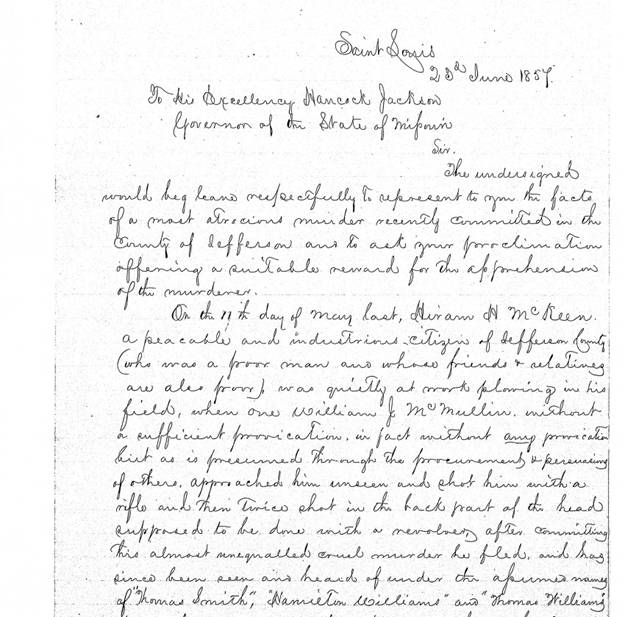 Saint Louis
23d June 1857.
To His Excellency Hancock Jackson
Governor of the State of Missouri
Sir.
The undersigned
would beg leave respectfully to represent to you the facts
of a most atrocious murder recently committed in the
County of Jefferson and to ask your proclimation
offering a suitable reward for the apprehension
of the murderer.
On the 19th day of May last, Hiram H McKeen.
a peacable and industrious citizen of Jefferson County
(who was a poor man and whose friends & relatives
are also poor), was quietly at work plowing in his
field, when one William J. McMullin. without
a sufficient provication, in fact without any provication
but as is presumed through the procurement & persuasion
of others, approached him unseen and shot him with a
rifle and then twice shot in the back part of the head
supposed to be done with a revolver, after committing
this almost unequalled cruel murder he fled, and has
since been seen and heard of under the assumed names
of "Thomas Smith", "Hamilton Williams" and "Thomas Williams